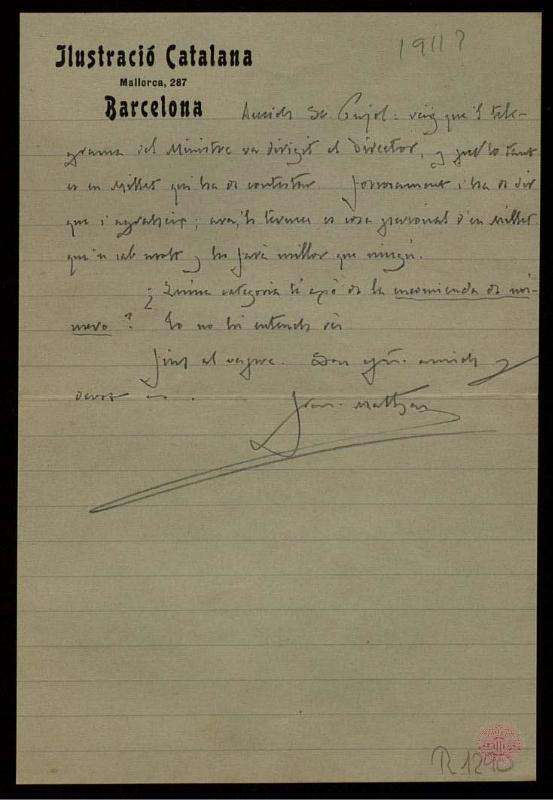 1911?
Ilustració Catalana
Mallorca, 287
Barcelona
Amich Sr Pujol: veig que'l tele-
grama del Ministre va dirigit al Director, y per lo tant
es en Millet qui ha de contestar forsosament i ha de dir
que s'agraheix; ara, lo demés es cosa personal d'en Millet
qui'n sab molt y ho farà millor que ningú.
¿Quina categoria té axò de la encomienda de nú-
mero? Jo no hi entench res
Fins al vespre. Son amich y
devot
Fran. Matheu
R. 1290